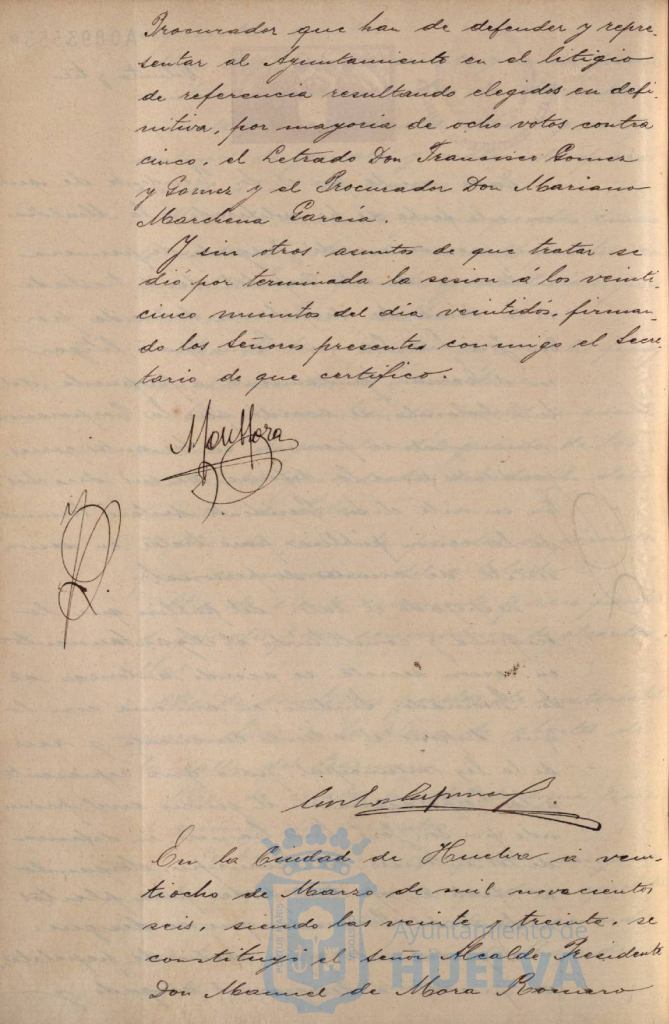 Procurador que han de defender y repre-
sentar al Ayuntamiento en el litigio
de referencia resultando elegidos en defi-
nitiva, por mayoria de ocho votos contra
cinco, el Letrado Don Francisco Gomez
y Gomez y el Procurador Don Mariano
Marchena García.
Y sin otros asuntos de que tratar se
dió por terminada la sesion á los veinti-
cinco minutos del dia veintidós, firman-
do los Señores presentes conmigo el Secre-
tario de que certifico.
En la Ciudad de Huelva á vein-
tiocho de Marzo de mil novecientos
seis, siendo las veinte y treinta, se
constituyó el Señor Alcalde Presidente
Don Manuel de Mora Romero
Ayuntamiento de
HUELVA